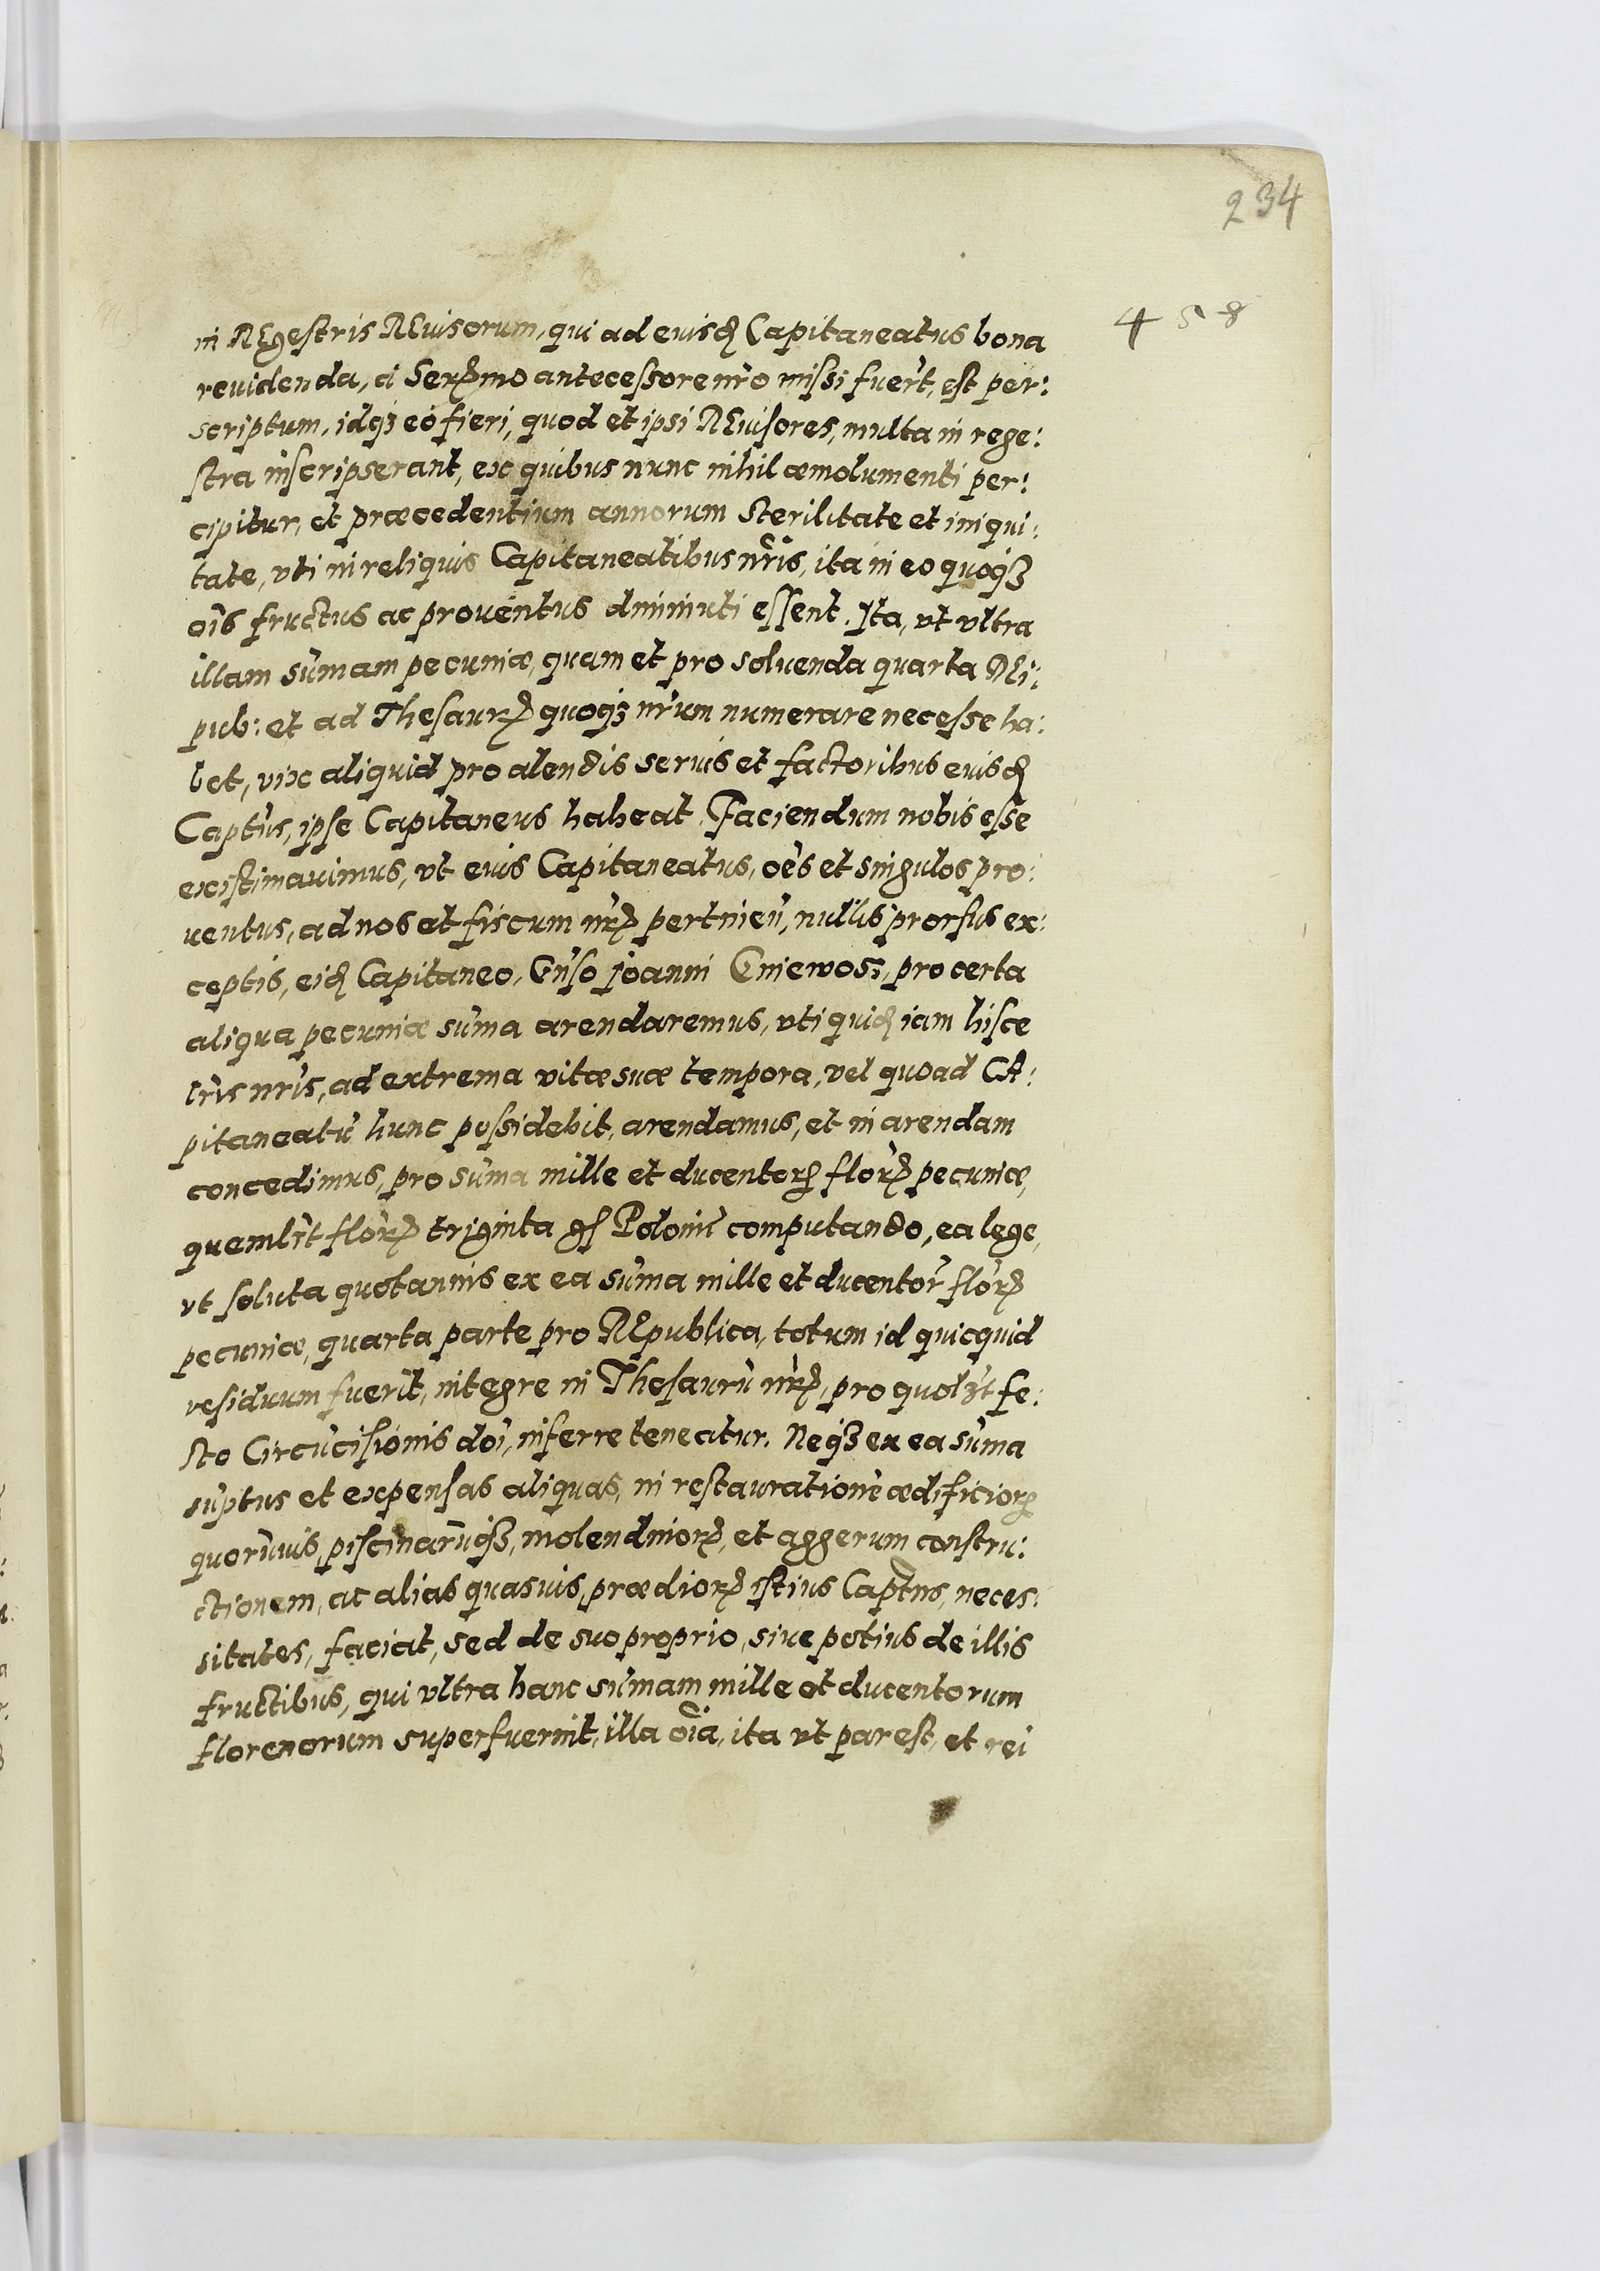 234
458
in REgestris REuisorum, qui ad euisꝗ Capitaneatus bona
reuidenda, à Serꝝmo antecessore nr̃o missi fuer̃t, est per:
scriptum, idqꝫ eò fieri, quod et ipsi REuisores, multa in rege:
stra inscripserant, ex quibus nunc nihil æmolumenti per:
cipitur, et præcedentium annorum sterilitate et iniqui:
tate, vti in reliquis Capitaneatibus nr̃is, ita in eo quoqꝫ
oĩs fructus ac prouentus diminuti essent. Ita, vt vltra
illam sum̃am pecuniæ, quam et pro soluenda quarta REi:
pub: et ad Thesaurꝝ quoqꝫ nr̃um numerare necesse ha:
bet, vix aliquid pro alendis seruis et factoribus euisꝗ
Captũs, ipse Capitaneus habeat. Faciendum nobis esse
existimauimus, vt euis Capitaneatus, oẽs et singulos pro:
uentus, ad nos et fiscum nr̃ꝝ pertineñ, nullis prorsus ex:
ceptis, eiꝗ Capitaneo, Gñso Joanni Gniewosz, pro certa
aliqua pecuniæ sum̃a arendaremus, vti quiꝗ iam hisce
lr̃is nr̃is, ad extrema vitæ suæ tempora, vel quoad CA:
pitaneatũ hunc possidebit, arendamus, et in arendam
concedimus, pro sum̃a mille et ducentorꝝ florꝝ pecuniæ,
quemlĩt florꝝ triginta gṡ Polonis̃ computando, ea lege,
vt soluta quotannis ex ea sum̃a mille et ducentor̃ florꝝ
pecuniæ, quarta parte pro REpublica, totum id quicquid
residuum fuerit, integre in Thesaurũ nr̃ꝝ, pro quolꝫt fe:
sto Circũcisionis doĩ, inferre teneatur. Neqꝫ ex ea sum̃a
sũptus et expensas aliquas, in restauratioñe ædificiorꝝ
quorũuis, piscinarũqꝫ, molendinorꝝ, et aggerum constru:
ctionem, ac alias quasuis, prædiorꝝ istius Captñs, neces:
sitates, faciat, sed de suo proprio, siue potius de illis
fructibus, qui vltra hanc sum̃am mille et ducentorum
florenorum superfuerint, illa oĩa, ita vt par est, et rei